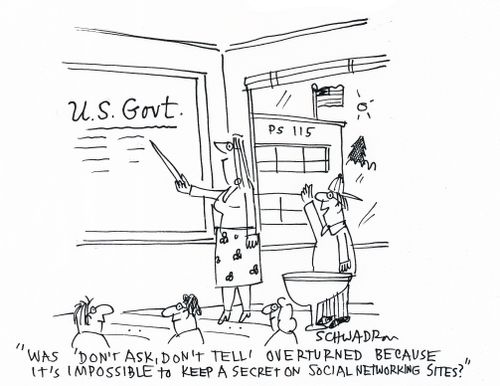 U.S. Govt.
PS 115
SCHWADRON
"WAS 'DON'T ASK, DON'T TELL' OVERTURNED BECAUSE
IT'S IMPOSSIBLE TO KEEP A SECRET ON SOCIAL NETWORKING SITES?"